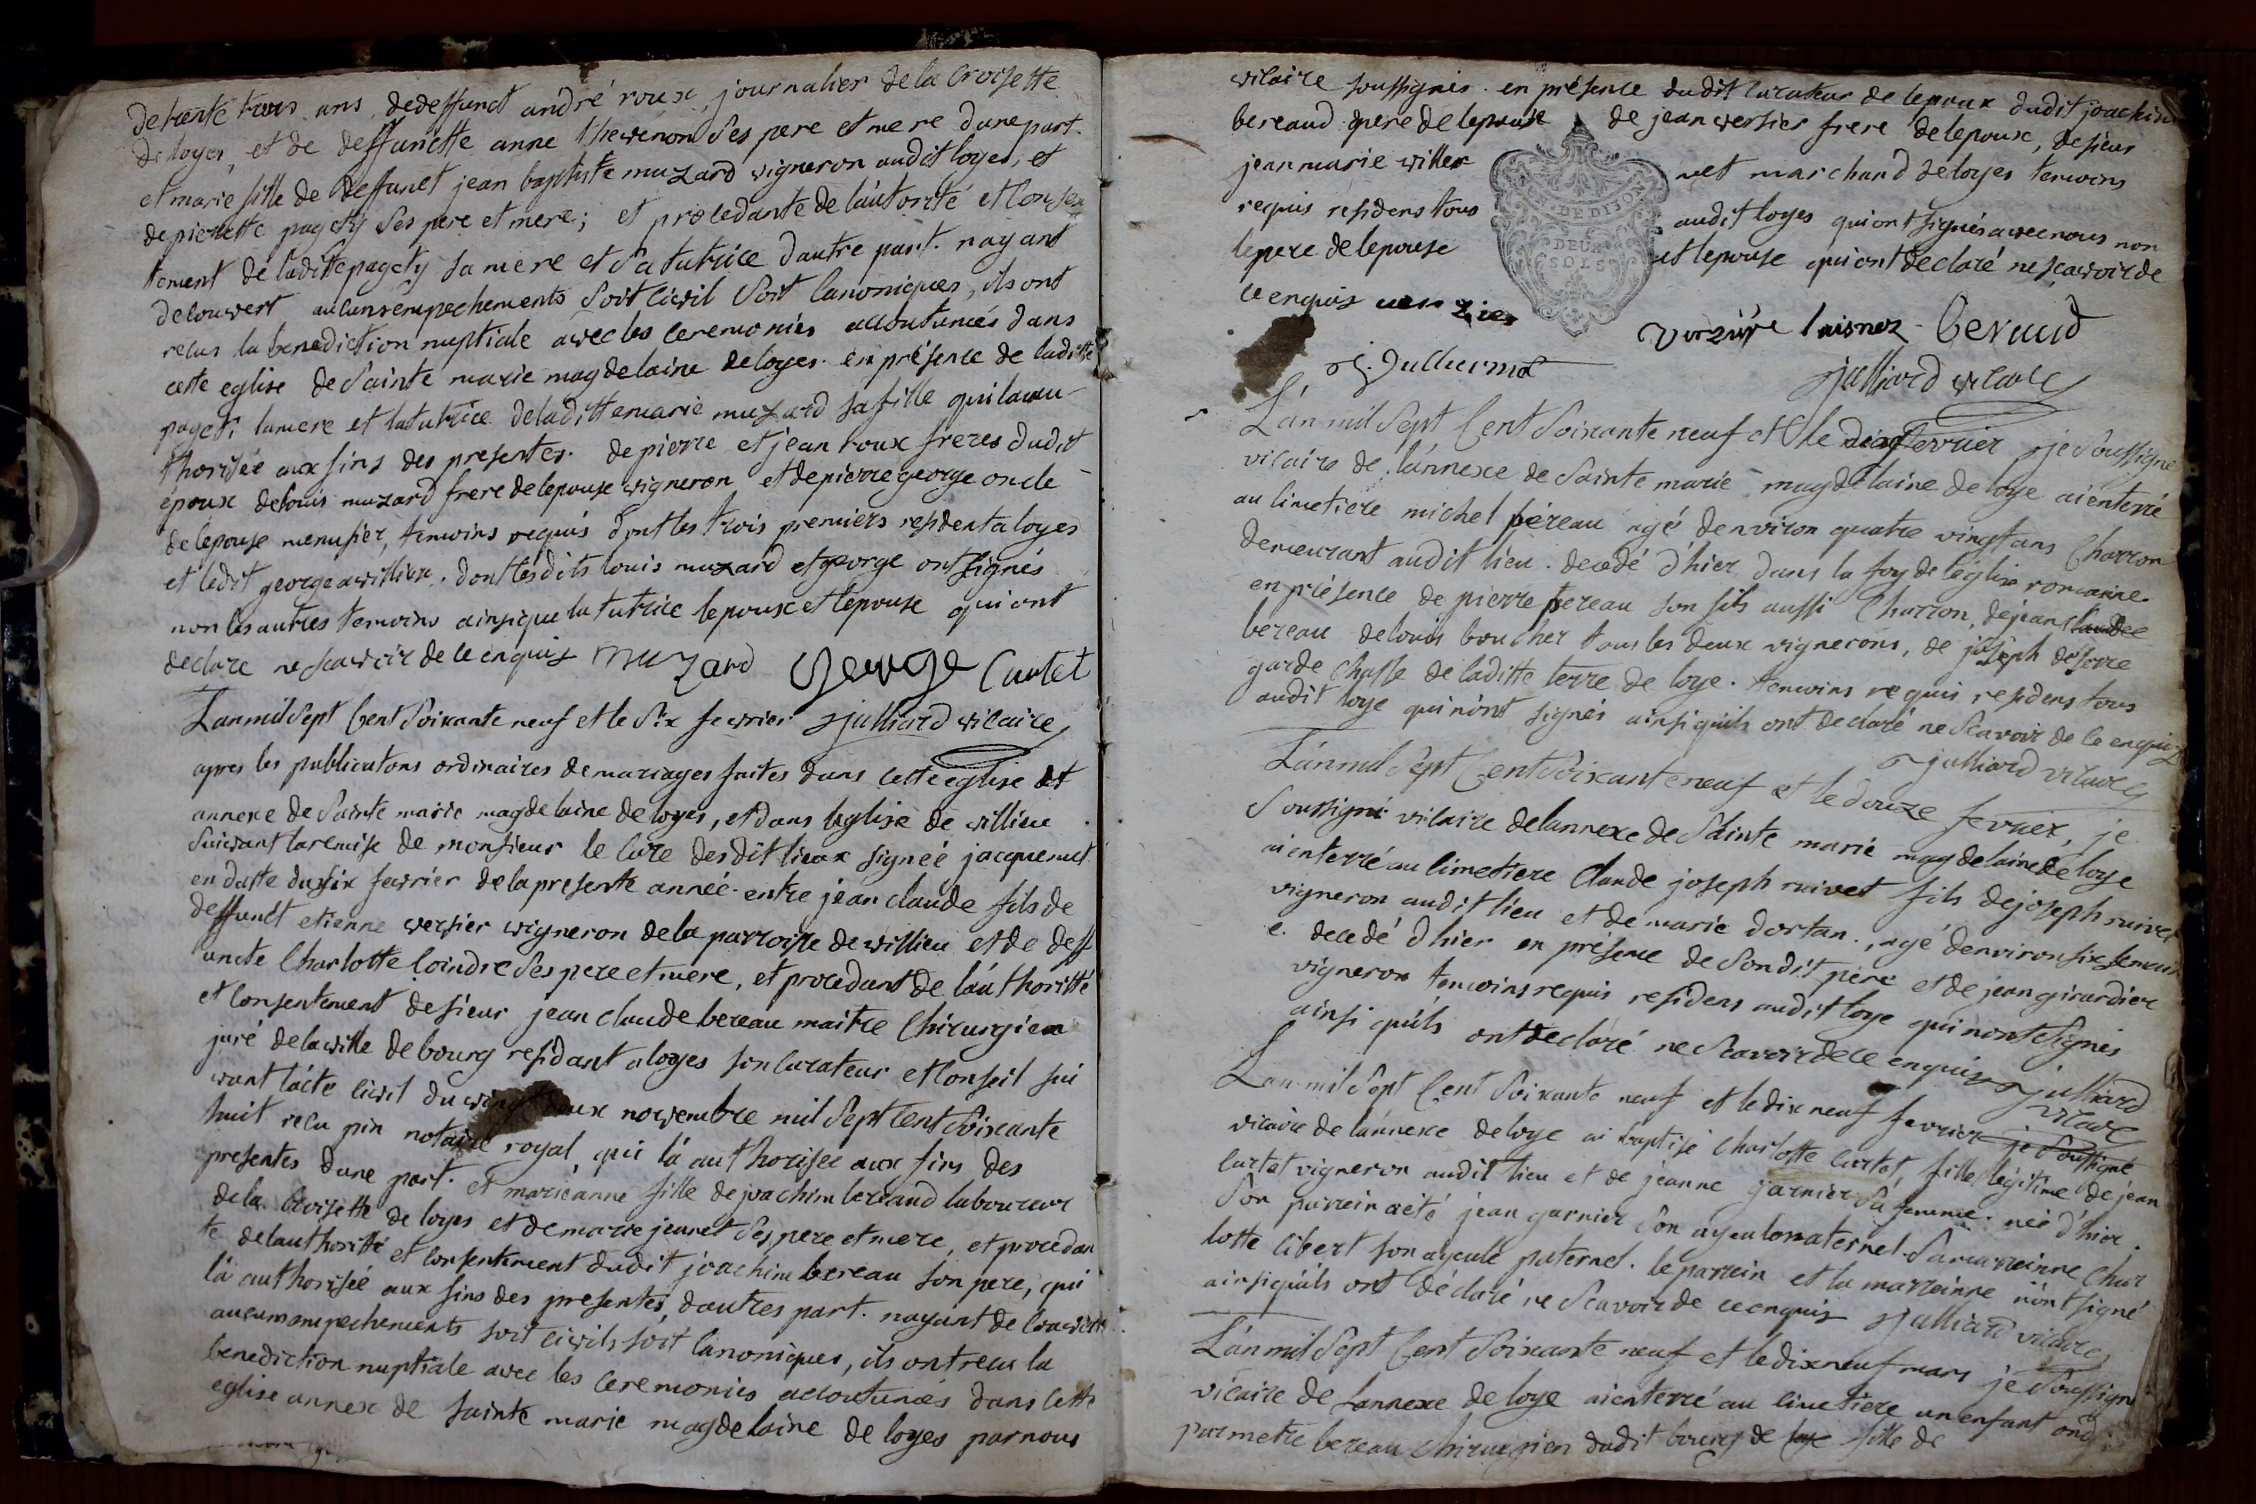 de trente trois ans, de deffunct andré roux, journalier de la Croisette
de loyes, et de deffuncte anne thevenon ses pere et mere dune part.
et marie fille de deffunct jean baptiste muzard vigneron audit loyes, et
de pierrette pagety ses pere et mere; et procedante de láutorité et Consen
tement de laditte pagety sa mere et sa tutrice dautre part. nayant
decouvert aucuns empechements soit civil soit Canoniques, ils ont
recus la benediction nuptiale avec les ceremonies accoutumés dans
cette eglise de Sainte marie magdelaine de loyes. en présence de laditte
pageti lamere et latutrice deladitte marie muzard sa fille qui la au
thorisée aux fins des presentes. de pierre et jean roux freres dudit
époux de louis muzard frere de lepouse vigneron et de pierre george oncle
de lépouse menusier, temoins requis dont les trois premiers resident a loyes
et ledit george a villieu. dont lesdits louis muzard et george ont signés
non les autres temoins ainsi que la tutrice lepoux et lepouse qui ont
declare ne scavoir de ce enquis muzard George Cautet
Lan mil sept Cent Soixante neuf et le Six fevrier julliard vicaire
apres les publications ordinaires de mariages faites dans cette eglise et
annexe de Sainte marie magdelaine de loyes, et dans leglise de villieu
suivant la remise de monsieur le Cure desdit lieux signée jacquemet
en datte du six fevrier de la presente année. entre jean claude fils de
deffunct etienne versier vigneron de la parroisse de villieu et de deff
uncte Charlotte Coindre ses pere et mere, et procedant de láuthoritté
et Consentement de sieur jean claude bereau maitre Chirurgien
juré de la ville de bourg residant a loyes son curateur et Conseil sui
vant lácte civil du vingt deux novembre mil sept Cent Soixante
huit recu pin notaire royal, qui lá authorisée aux fins des
presentes dune part. et marie anne fille de joachim bereaud laboureur
de la Croisette de loyes et de marie jeanet ses pere et mere, et procedan
te de lauthoritté et consentement dudit joachim bereau son pere, qui
lá authorisée aux fins des presentes dautres part. nayant decouvert
aucuns empechements soit civils soit Canoniques, ils ont recu la
benediction nuptiale avec les ceremonies accoutumés dans cette
eglise annexe de Sainte marie magdelaine de loyes par nous
vicaire soussignés. en présence dudit Curateur de lepoux dudit joachim
bereaud pere de lepouse de jean versier frere de lepoux, de sieur
jean marie viller net marchand de loyes temoins
requis residens tous audit loyes qui ont signés avec nous non
le pere de lepouse et lepouse qui ont declaré ne scavoir de
ce enquis verzier
GEN. DE DIJON
DEUX
SOLS
verzière laisnez Beraud
Guillermot
julliard vicaire
Lán mil Sept Cent Soixante neuf et le dix fevrier je Soussigne
vicaire de lánnexe de Sainte marie magdelaine de loye ai enterré
au Cimetiere michel béreau agé denviron quatre vingt ans Charron
demeurant audit lieu. decedé d'hier dans la foy de léglise romaine.
en présence de pierre bereau son fils aussi Charron, de jean claude
bereau de louis boucher tous les deux vignerons, de joseph deserre
garde Chasse de laditte terre de loye. temoins requis residens tous
audit loye qui nònt signés ainsi quils ont declaré ne Scavoir de ce enquis
julliard vicaire
Lán mil Sept Cent Soixante neuf et le douze fevrier, je
Soussigné vicaire de lannexe de Sainte marie magdelaine de loye
ai enterré au Cimetiere Claude joseph ruivet fils de joseph ruivet
vigneron audit lieu et de marie dortan., agé denviron six semain
e. decedé d'hier en presence de Sondit pere et de jean girardier
vigneron temoins requis residens audit loye qui nont Signés
ainsi quils ont declaré ne Scavoir de ce enquis julliard
vicaire
Lan mil Sept Cent Soixante neuf et le dix neuf fevrier je Soussigné
vicaire de lánnexe de loye ai baptisé Charlotte Cartet, fille légitime de jean
Cartet vigneron audit lieu et de jeanne garnier sa femme. née d'hier.
Son parrein a eté jean garnier Son ayeul maternel. Sa marreinne Char
lotte Cibert son ayeule paternel. le parrein et la marreinne nònt signé
ainsi quils ont declaré ne Scavoir de ce enquis julliard vicaire
Lán mil Sept Cent Soixante neuf et le dix neuf mars je Soussigné
vicaire de Lannexe de loye ai enterré au Cimetiere un enfant ond
par metre bereau Chirurgien dudit bourg de loye fille de